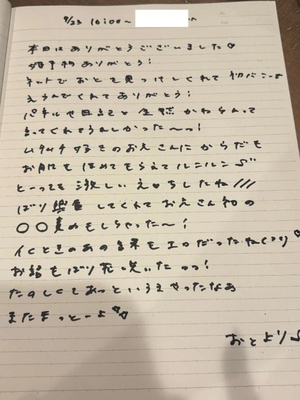 9/23 16:00〜
本日はありがとうございました♡
姫予約ありがとう！
ネットでおとを見つけてくれて初バニーで
えらんでくれてありがとう！
パネルや日記と全然かわらんって
言ってくれてうれしかった〜っ！
ムチムチすきのお兄さんにからだも
お肌もほめてもらえてルンルン♪
とーっても激しいえ♡ちしたね///
ばり興奮してくれてお兄さん初の
〇〇責めもしちゃった〜！
イくときのあの言葉もエロだったね
お話もばり花咲いたっっ！
たのしくてあっというまやったなあ
またまっとーよ♡
おとより♪